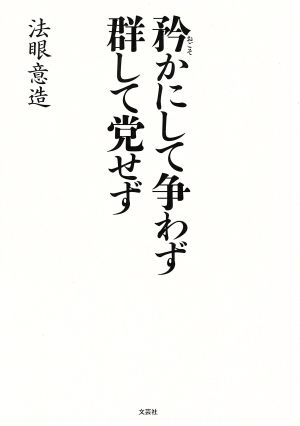 矜かにして争わず
おごそ
群して党せず
法眼意造
文芸社